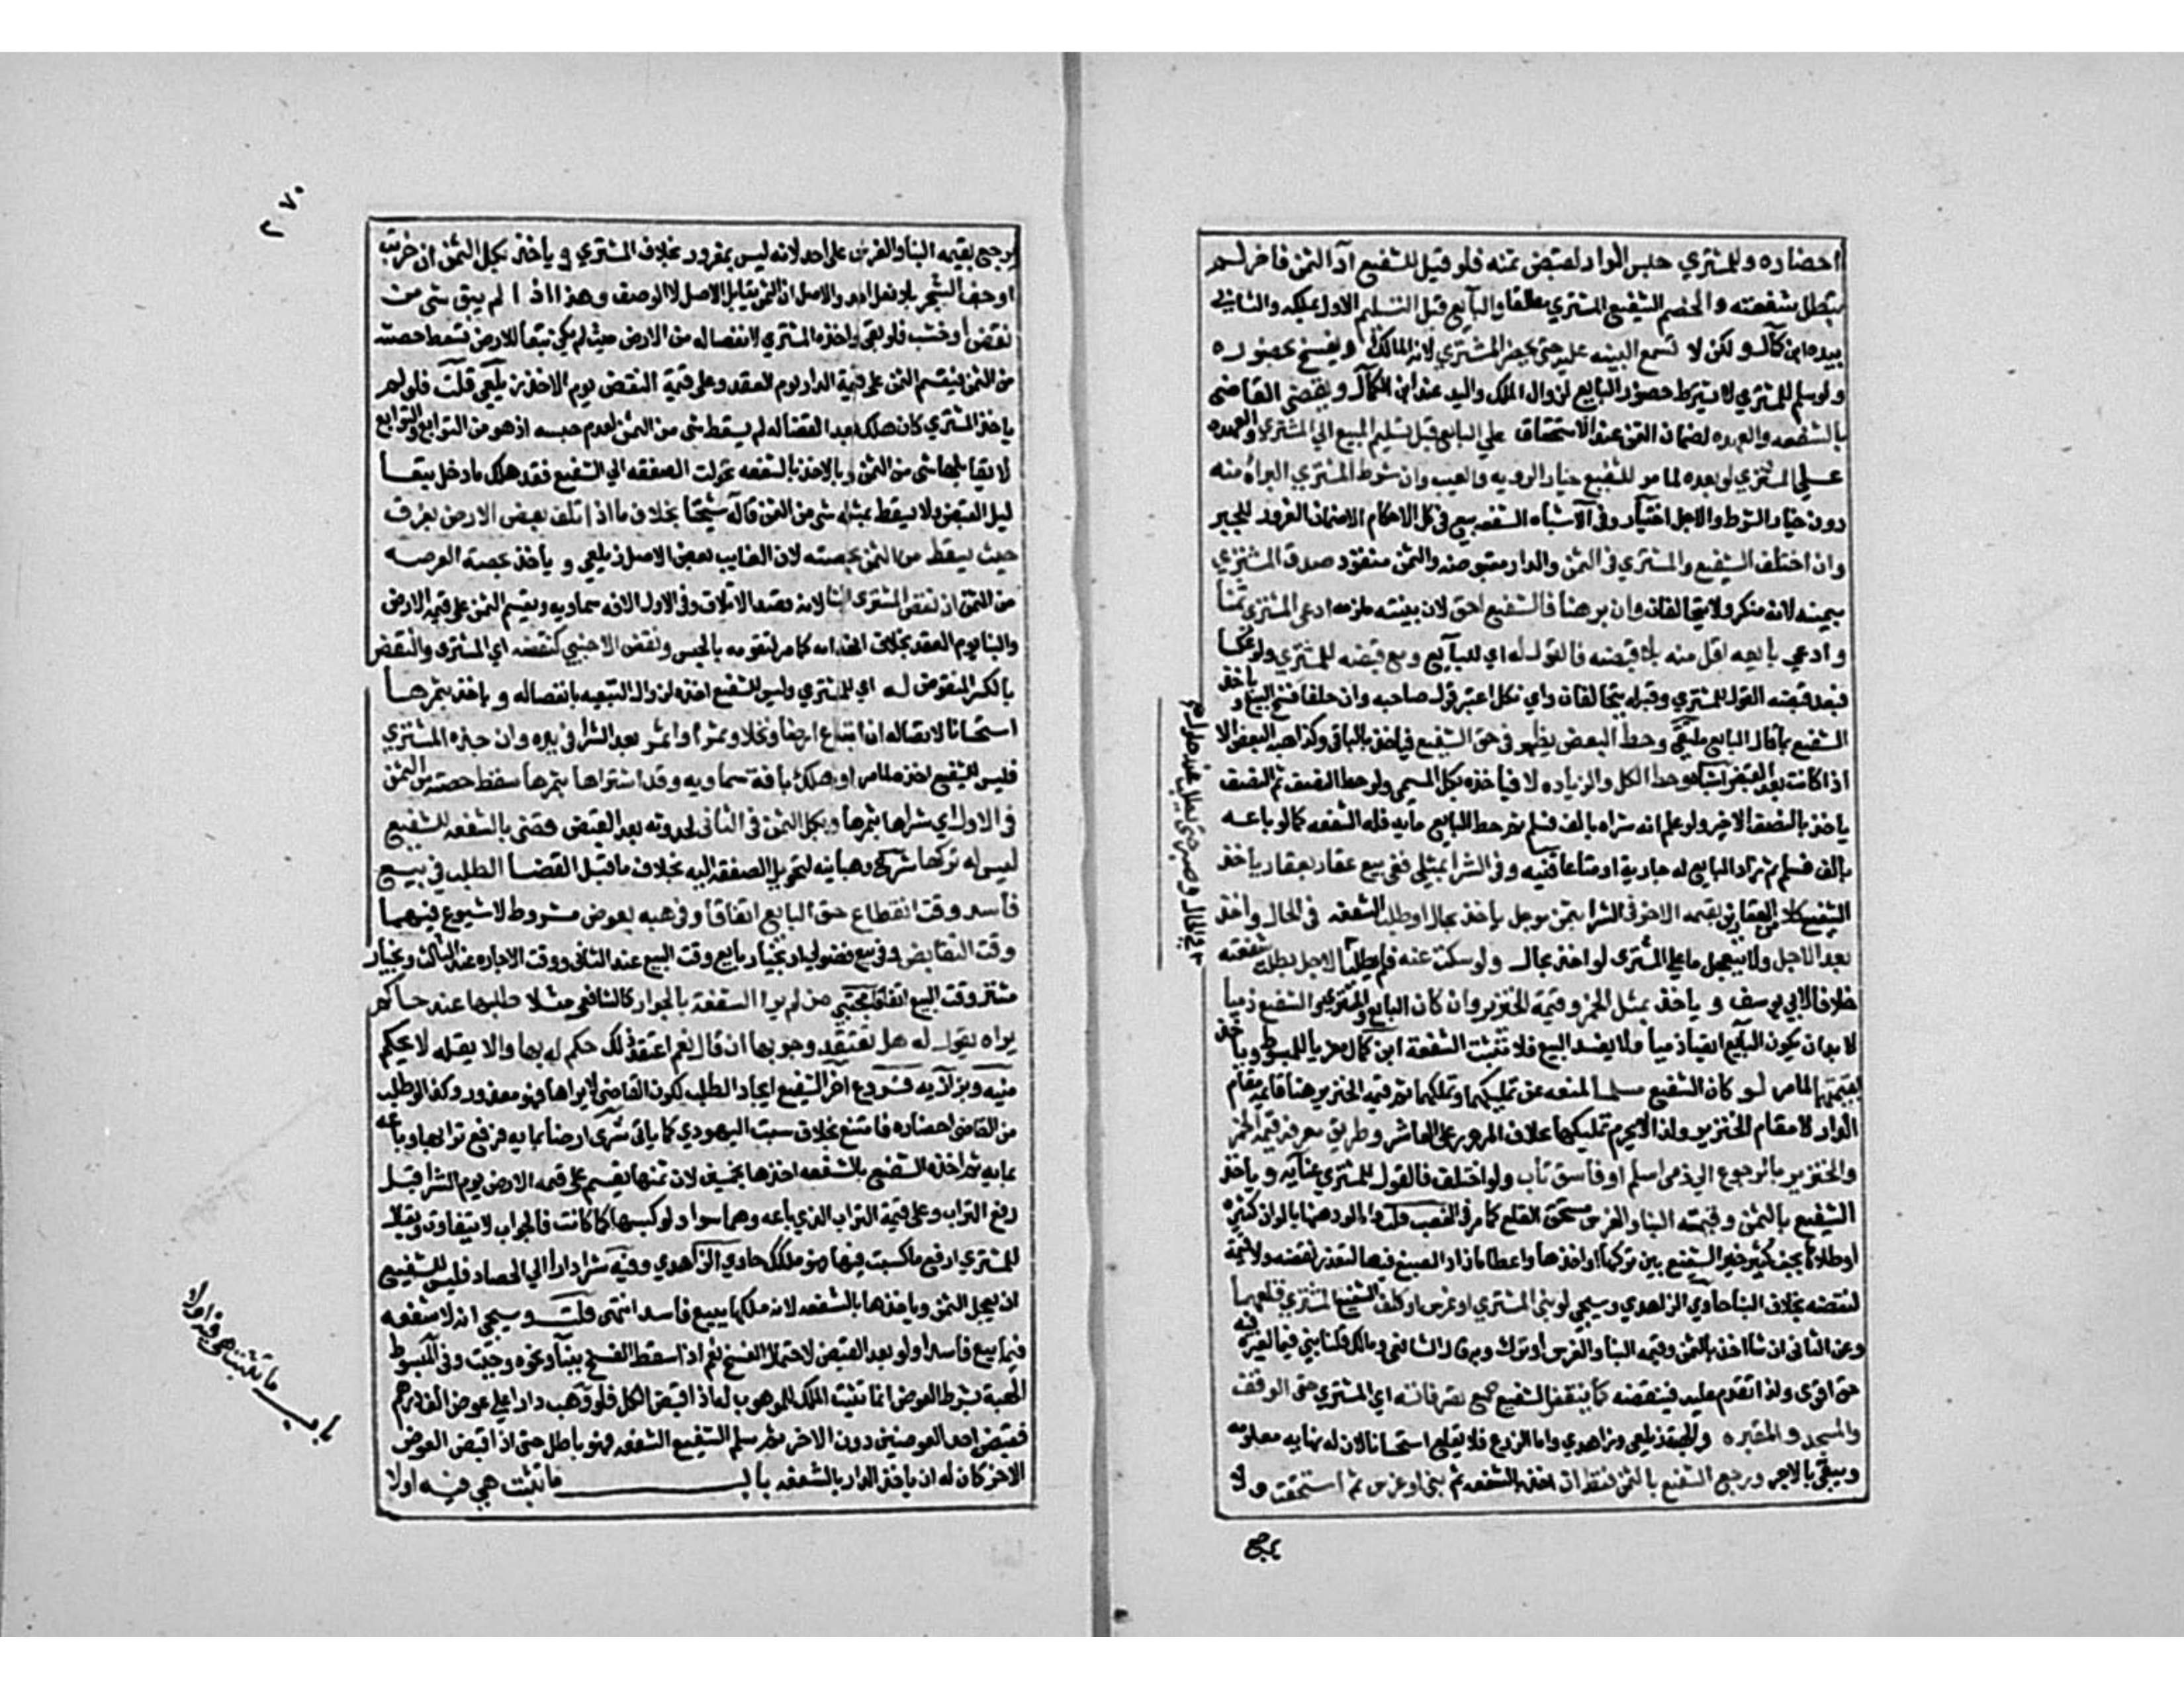 احضاره وللمشتري حبس الدار ليقبض ثمنه فلو قيل للشفيع اد الثمن فاخر لم
تبطل شفعته والخصم للشفيع المشتري مطلقا والبايع قبل التسليم الاول بملكه والثاني
بيده ابن كمال ولكن لا تسمع البينه عليه حتى يحضر المشتري لانه المالك ويفسخ بحضوره
ولو سلم للمشتري لا يشترط حضور البايع لزوال الملك واليد عنه ابن الكمال ويقضي القاضي
بالشفعه والعهده لضمان الثمن عند الاستحقاق على البايع قبل تسليم المبيع الي المشتري والعهده
علي المشتري لو بعده لما مر للشفيع خيار الرويه والعيب وان شرط المشتري البراة منه
دون خيار الشرط والاجل اختيار وفي الاشباه الشفعه بيع في كل الاحكام الا ضمان الغرور للجبر
وان اختلف الشفيع والمشتري في الثمن والدار مقبوضه والثمن منقود صدق المشتري
بيمينه لانه منكر ولا يتحالفان وان برهنا فالشفيع احق لان بينته ملزمه ادعى المشتري ثمنا
وادعي بايعه اقل منه بلا قبضه فالقول له اي للبايع ومع قبضه للمشتري ولو عكسا
فبعد قبضه القول للمشتري وقبله يتحالفان واي نكل اعتبر قول صاحبه وان حلفا فسخ البيع و ياخذ
الشفيع بما قال البايع ملتقى وحط البعض يظهر في حق الشفيع فياخذ بالباقي وكذا هبة البعض الا
اذا كانت بعد القبض اشباه وحط الكل والزياده لا فياخذه بكل المسمى ولو حط النصف ثم النصف
ياخذ بالنصف الاخير ولو علم انه شراه بالف فسلم ثم حط البايع مايه فله الشفعه كما لو باعه
بالف فسلم ثم زاد البايع له جارية او متاعا قنيه وفي الشرا بمثلي ففي بيع عقار بعقار ياخذ
الشفيع كلا من العقارين بقيمه الاخر وفي الشرا بثمن موجل ياخذ بحال او طلب الشفعه في الحال واخذ
بعد الاجل ولا يتعجل ما على المشتري لو اخذ بحال ولو سكت عنه فلم يطلب لاجل بطلت شفعته
خلافا لابي يوسف و ياخذ بمثل الخمر وقيمة الخنزير وان كان البايع والمشتري والشفيع ذميا
لا بد ان يكون البايع ايضا ذميا فلا يفسد البيع فلا تثبت الشفعة ابن كمال معزيا للمبسوط وياخذ
بقيمتهما لما مر لو كان الشفيع مسلما لمنعه عن تمليكهما وتملكهما ثم قيمه الخنزير هنا قايمه مقام
الدار لا مقام الخنزير ولذا لا يحرم تمليكها بخلاف المرور على العاشر وطريق معرفه قيمه الخمر
والخنزير بالرجوع الي ذمي اسلم او فاسق تاب ولو اختلف فالقول للمشتري عنايه و ياخذ
الشفيع بالثمن وقيمته البنا والغرس مستحق القلع كما مر في الغصب قلت واما لو دهنها بالوان كثيره
او طلاها بجص كثير خير الشفيع بين تركها او اخذها واعطا ما زاد الصبغ فيها لتعذر نقضه ولا قيمة
لنقضه بخلاف البنا حاوي الزاهدي وسيجي لو بنى المشتري او غرس او كلف الشفيع المشتري قلعهما
وعن الثاني ان شا اخذ بالثمن وقيمه البنا والغرس او ترك وبه قال الشافعي ومالك قلنا بنى فيما لغيره فيه
حق اقوى ولذا تقدم عليه فينقضه كما ينقض الشفيع جميع تصرفاته اي المشتري حتى الوقف
والمسجد والمقبره والهبه زيلعي وزاهدي واما الزرع فلا يقلع استحسانا لان له نهايه معلومه
ويبقى بالاجر ويرجع الشفيع بالثمن فقط ان اخذ بالشفعه ثم بنى او غرس ثم استحقت ولا
يرجع
٢٧٠
يرجع بقيمه البنا والغرس على احد لانه ليس بمغرور بخلاف المشتري و ياخذ بكل الثمن ان خربت
او جف الشجر بلا فعل احد والاصل ان الثمن يقابل الاصل لا الوصف وهذا اذا لم يبق شي من
نقض او خشب فلو بقى واخذه المشتري لانفصاله من الارض حيث لم يكن تبعا للارض تسقط حصته
من الثمن فيقسم الثمن على قيمة الدار يوم العقد وعلى قيمة النقض يوم الاخذ زيلعي قلت فلو لم
ياخذ المشتري كان هلك بعد انفصاله لم يسقط شي من الثمن لعدم حبسه اذ هو من التوابع والتوابع
لا يقابلها شي من الثمن وبالاخذ بالشفعه تحولت الصفقه الي الشفيع فقد هلك ما دخل تبعا
قبل القبض ولا يسقط بمثله شي من الثمن قاله شيخنا بخلاف ما اذا تلف بعض الارض بغرق
حيث يسقط من الثمن بحصته لان الغايب بعض الاصل زيلعي و ياخذ بحصة العرصه
من الثمن ان نقض المشتري البنا لانه قصد الاتلاف وفي الاول الافه سماويه ويقسم الثمن على قيمه الارض
والبنا يوم العقد بخلاف انهدامه كما مر لتقومه بالحبس ونقض الاجنبي كنقضه اي المشتري والنقض
بالكسر المنقوض له اي للمشتري وليس للشفيع اخذه لزوال التبعيه بانفصاله و ياخذ بثمرها
استحسانا لاتصاله ان ابتاع ارضا ونخلا وثمرا او اثمر بعد الشرا في يده وان جذه المشتري
فليس للشفيع اخذه لما مر او هلك بافة سماويه وقد اشتراها بثمرها سقط حصته من الثمن
في الاول اي شراها بثمرها وبكل الثمن في الثاني لحدوثه بعد القبض قضي بالشفعه للشفيع
ليس له تركها شرح وهبانيه لتحويل الصفقه اليه بخلاف ما قبل القضا الطلب في بيع
فاسد وقت انقطاع حق البايع اتفاقا وفي هبه بعوض مشروط لا شيوع فيهما
وقت التقابض وفي بيع فضولي او بخيار بايع وقت البيع عند الثاني ووقت الاجازه عند الثالث وبخيار
مشتر وقت البيع اتفاقا مجتبي من لم يرا الشفعة بالجوار كالشافعي مثلا طلبها عند حاكم
يراه يقول له هل تعتقد وجوبها ان قال نعم اعتقد ذلك حكم له بها والا يقله لا يحكم
منيه وبزازيه فروع اخر الشفيع ايجاد الطلب لكون القاضي لا يراها فهو معذور وكذا لو طلب
من القاضي احضاره فامتنع بخلاف سبت اليهودي كما ياتي شرى ارضا بمايه فرفع ترابها وباعه
بمايه ثم اخذها الشفيع بالشفعه اخذها بخمسين لان ثمنها يقسم على قيمه الارض يوم الشرا قبل
رفع التراب وعلى قيمة التراب الذي باعه وهما سوا ولو كبسها كما كانت فالجواب لا يتفاوت ويقال
للمشتري ارفع ما كبست فيها فهو ملكك حاوي الزاهدي وفيه شرا دارا الي الحصاد فليس للشفيع
ان يعجل الثمن وياخذها بالشفعه لانه ملكها ببيع فاسد انتهى قلت وسيجى انه لا شفعه
فيما بيع فاسدا ولو بعد القبض لاحتمال الفسخ نعم اذا سقط الفسخ ببنا ونحوه وجبت وفي المبسوط
الهبة بشرط العوض انما تثبت الملك للموهوب له اذا قبض الكل فلو وهب دارا على عوض الف درهم
فقبض احد العوضين دون الاخر ثم سلم الشفيع الشفعه فهو باطل حتى اذا قبض العوض
الاخر كان له ان ياخذ الدار بالشفعه باب ما تثبت هي فيه اولا
باب ما تثبت هي فيه اولا